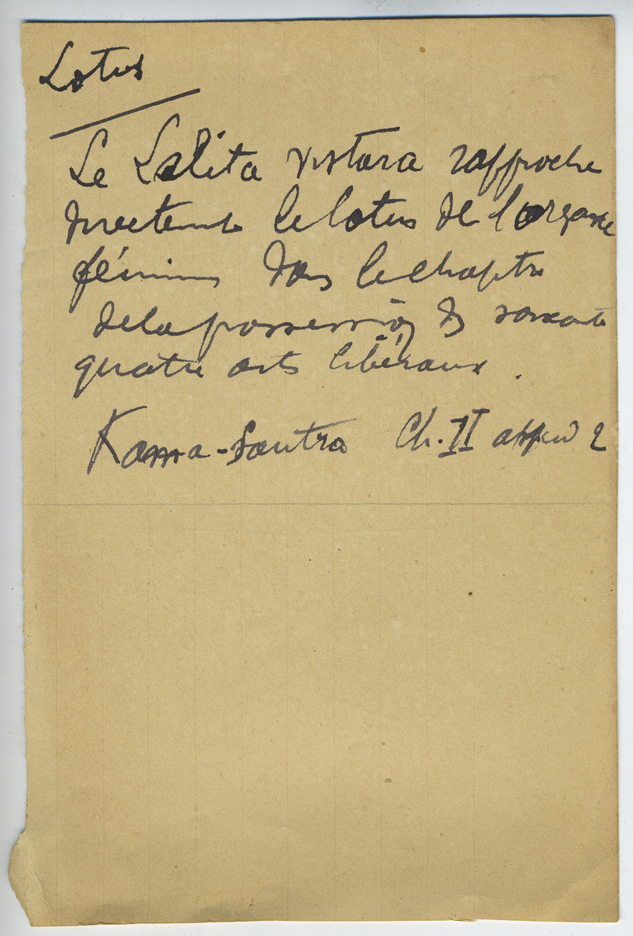 Lotus
Le Lalita vistara rapproche
directement le lotus de l'organe
féminin dans le chapitre
de la possession des soixante
quatre arts libéraux.
Kama-Soutra Ch. II append 2